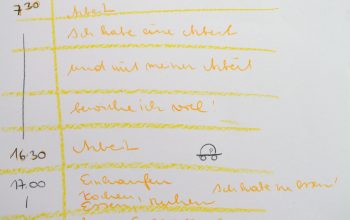 7.30 Arbeit
Ich habe eine Arbeit
und mit meiner Arbeit
ich viel!
16.30 Arbeit
17.00 Einkaufen
Kochen, Ich habe zu essen!
Essen, ruhen